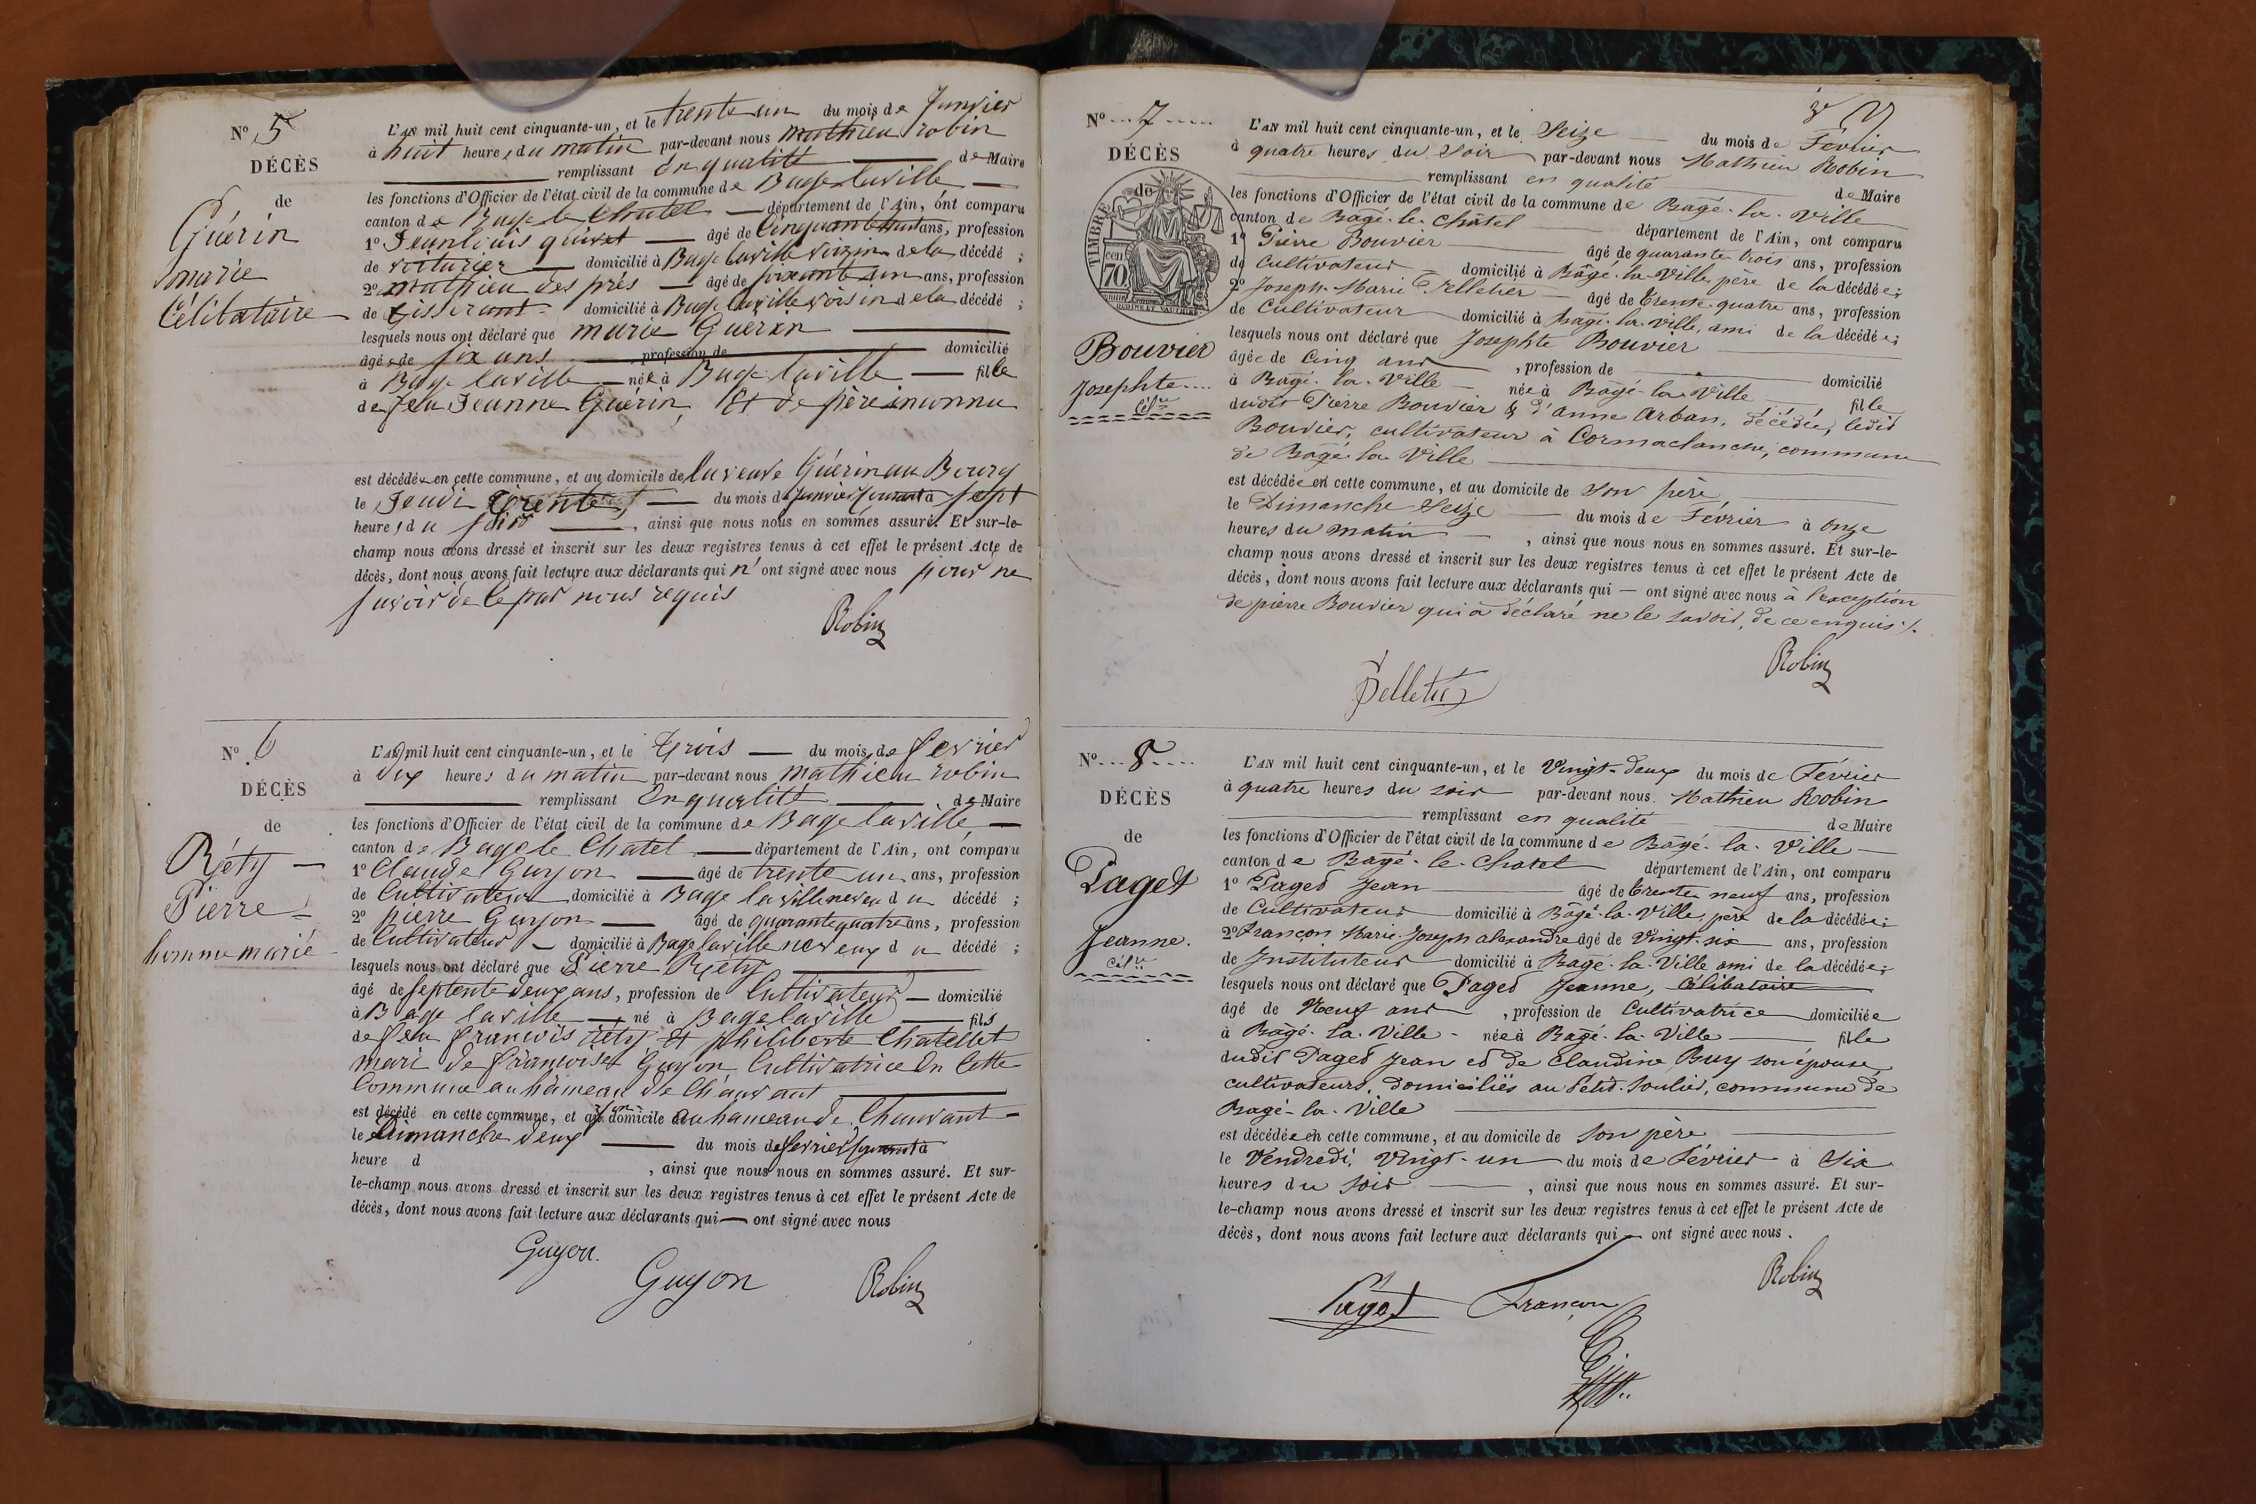 N° 5
DÉCÈS
de
Guérin
marie
Célibataire
L'AN mil huit cent cinquante-un, et le trente un du mois de Janvier
à huit heures du matin par-devant nous mathieu robin
remplissant en qualité de Maire
les fonctions d'Officier de l'état civil de la commune de Bage laville
canton de Bage le Chatel département de l'Ain, ont comparu
1° Jean louis âgé de Cinquante huit ans, profession
de voiturier domicilié à Bage laville voizin de la décédé ;
2° mathieu des prés âgé de soixante un ans, profession
de tisserant domicilié à Bage laville voisin de la décédé ;
lesquels nous ont déclaré que marie Guerin
âgée de six ans profession de domicilié
à Bage laville née à Bage laville fille
de feu Jeanne Guérin, Et de père inconnu
est décédée en cette commune, et au domicile de la veuve Guérin au Bourg
le Jeudi trente du mois de Janvier courant à sept
heures du soir, ainsi que nous nous en sommes assuré. Et sur-le-
champ nous avons dressé et inscrit sur les deux registres tenus à cet effet le présent Acte de
décès, dont nous avons fait lecture aux déclarants qui n'ont signé avec nous pour ne
savoir de le par nous requis
Robin
N° 6
DÉCÈS
de
Réty
Pierre
homme marié
L'AN mil huit cent cinquante-un, et le trois du mois de fevrier
à dix heures du matin par-devant nous mathieu robin
remplissant en qualité de Maire
les fonctions d'Officier de l'état civil de la commune de Bage laville
canton de Bage le Chatel département de l'Ain, ont comparu
1° Claude Guyon âgé de trente un ans, profession
de Cultivateur domicilié à Bage la ville neveu du décédé ;
2° pierre Guyon âgé de quarante quatre ans, profession
de Cultivateur domicilié à Bage laville neveux du décédé ;
lesquels nous ont déclaré que Pierre Réty
âgé de septente deux ans, profession de Cultivateur domicilié
à Bage laville né à Bage laville fils
de feu francois réty Et philiberte Chatellet
mari de françoise Guyon Cultivatrice En Cette
Commune au hâmeau de Chauvant
est décédé en cette commune, et au domicile au hameau de Chauvant
le Dimanche deux du mois de fevrier courant à
heure d , ainsi que nous nous en sommes assuré. Et sur-
le-champ nous avons dressé et inscrit sur les deux registres tenus à cet effet le présent Acte de
décès, dont nous avons fait lecture aux déclarants qui ont signé avec nous
Guyon.
Guyon Robin
N° 7
DÉCÈS
de
TIMBRE
70
Bouvier
Josephte
L'AN mil huit cent cinquante-un, et le Seize du mois de Février
à quatre heures du Soir par-devant nous Mathieu Robin
remplissant en qualité de Maire
les fonctions d'Officier de l'état civil de la commune de Bagé-la-Ville
canton de Bagé-le-Châtel département de l'Ain, ont comparu
1° Pierre Bouvier âgé de quarante trois ans, profession
de Cultivateur domicilié à Bâgé-la-Ville, père de la décédée ;
2° Joseph-Marie Pelletier âgé de Trente-quatre ans, profession
de Cultivateur domicilié à Bagé-la-ville, ami de la décédée ;
lesquels nous ont déclaré que Josephte Bouvier
âgée de Cinq ans, profession de domicilié
à Bagé-la-Ville née à Bagé-la Ville fille
dudit Pierre Bouvier & d'anne Arban, décédée, ledit
Bouvier, cultivateur à Cormaclanche, commune
de Bagé-la-Ville
est décédée en cette commune, et au domicile de son père,
le Dimanche Seize du mois de Février à onze
heures du matin, ainsi que nous nous en sommes assuré. Et sur-le-
champ nous avons dressé et inscrit sur les deux registres tenus à cet effet le présent Acte de
décès, dont nous avons fait lecture aux déclarants qui — ont signé avec nous à l'exception
de pierre Bouvier qui a déclaré ne le savoir, de ce enquis ./.
Robin
Pelletier
N° 8
DÉCÈS
de
Paget
Jeanne.
L'AN mil huit cent cinquante-un, et le Vingt-deux du mois de Février
à quatre heures du soir par-devant nous Mathieu Robin
remplissant en qualité de Maire
les fonctions d'Officier de l'état civil de la commune de Bâgé-la-Ville
canton de Bagé-le-Chatel département de l'Ain, ont comparu
1° Paget Jean âgé de trente neuf ans, profession
de Cultivateur domicilié à Bâgé-la-Ville, père de la décédée ;
2° Françon Marie-Joseph alexandre âgé de Vingt-six ans, profession
de Instituteur domicilié à Bagé-la-Ville ami de la décédée ;
lesquels nous ont déclaré que Paget Jeanne, Célibataire
âgé de Neuf ans, profession de Cultivatrice domiciliée
à Bagé-la-Ville née à Bagé-la-Ville fille
dudit Paget Jean et de Claudine Buy son épouse,
cultivateurs, domiciliés au Petit-Soulier, commune de
Bagé-la-Ville
est décédée en cette commune, et au domicile de son père
le Vendredi, Vingt-un du mois de Février à Six
heures du Soir, ainsi que nous nous en sommes assuré. Et sur-
le-champ nous avons dressé et inscrit sur les deux registres tenus à cet effet le présent Acte de
décès, dont nous avons fait lecture aux déclarants qui ont signé avec nous.
Robin
Paget Françon